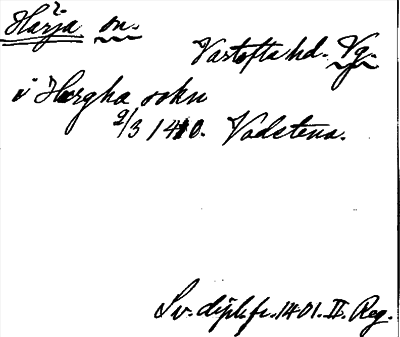 2.
Härja sn.
Vartofta hd. Vg.
i Hærgha sokn
2/3 1410. Vadstena.
Sv. dipl. fr. 1401. II. Reg.